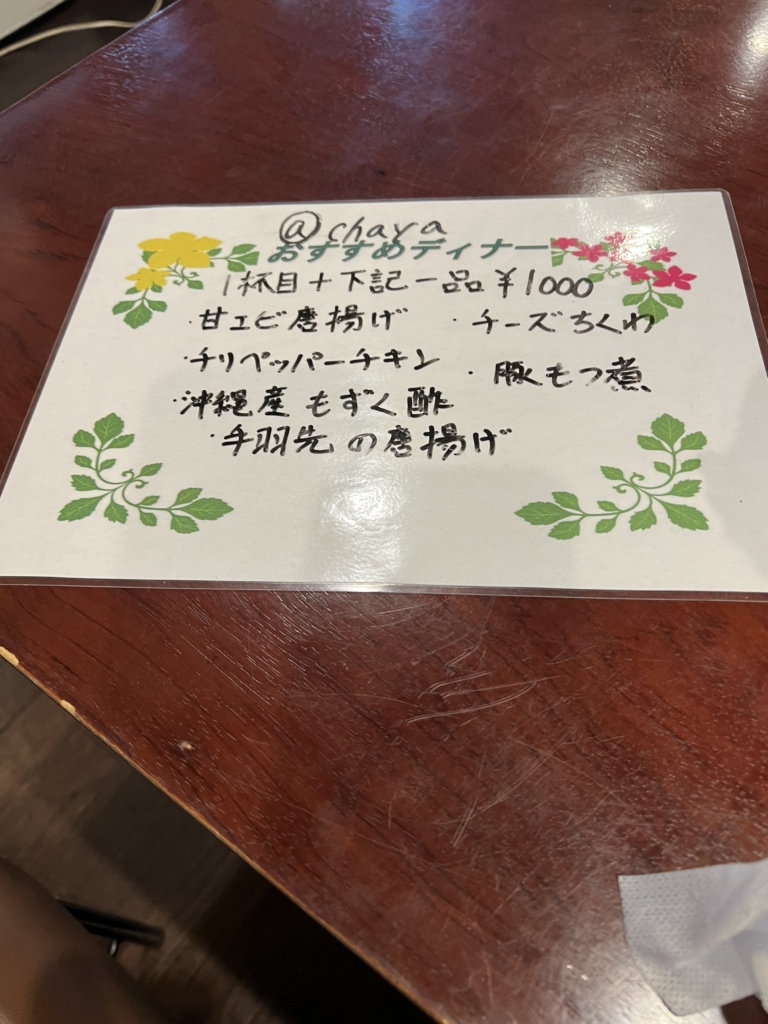 @chaya
おすすめディナー
1杯目+下記一品¥1000
・甘エビ唐揚げ ・チーズちくわ
・チリペッパーチキン ・豚もつ煮
・沖縄産もずく酢
・手羽先の唐揚げ